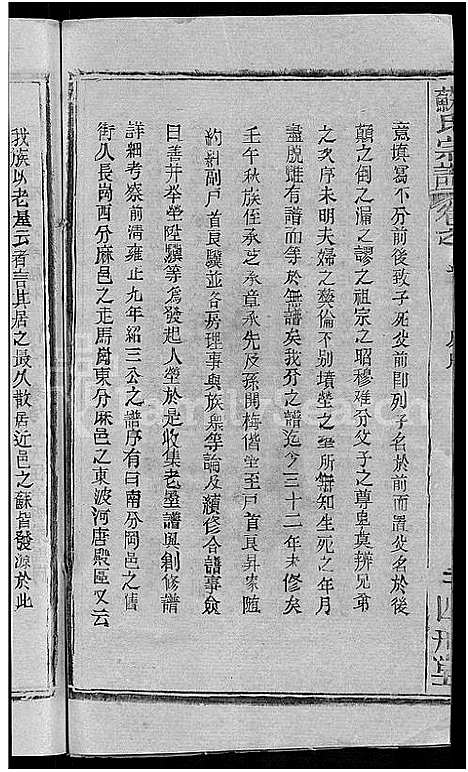 蘇氏宗譜
卷之
意填寫不分前後致子死父前卽列子名於前而置父名於後
顛之倒之漏之謬之祖宗之昭穆難分父子之尊卑莫辨兄弟
之次序未明夫婦之獎倫不別墳塋之塟所無知生死之年月
盡脫雖有譜之而等於無譜矣我分之譜迄今三十二年未修矣
壬午秋族侄承芝承章承先及孫開梅偕塋至戶首良昇家随
約紏副戶首良驥並各房理事與族衆等論及續修合譜事僉
曰善井舉塋陞驥等爲發起人塋於是收集老墨譜與創修譜
詳細考察前淸雍正九年紹三公之譜序有曰南分岡邑之舊
街人長岗西分麻邑之走馬崗東分麻邑之東波河唐殿區又云
四
堂
我族以老墨云者言其居之最久散居近邑之蘇皆發源於此